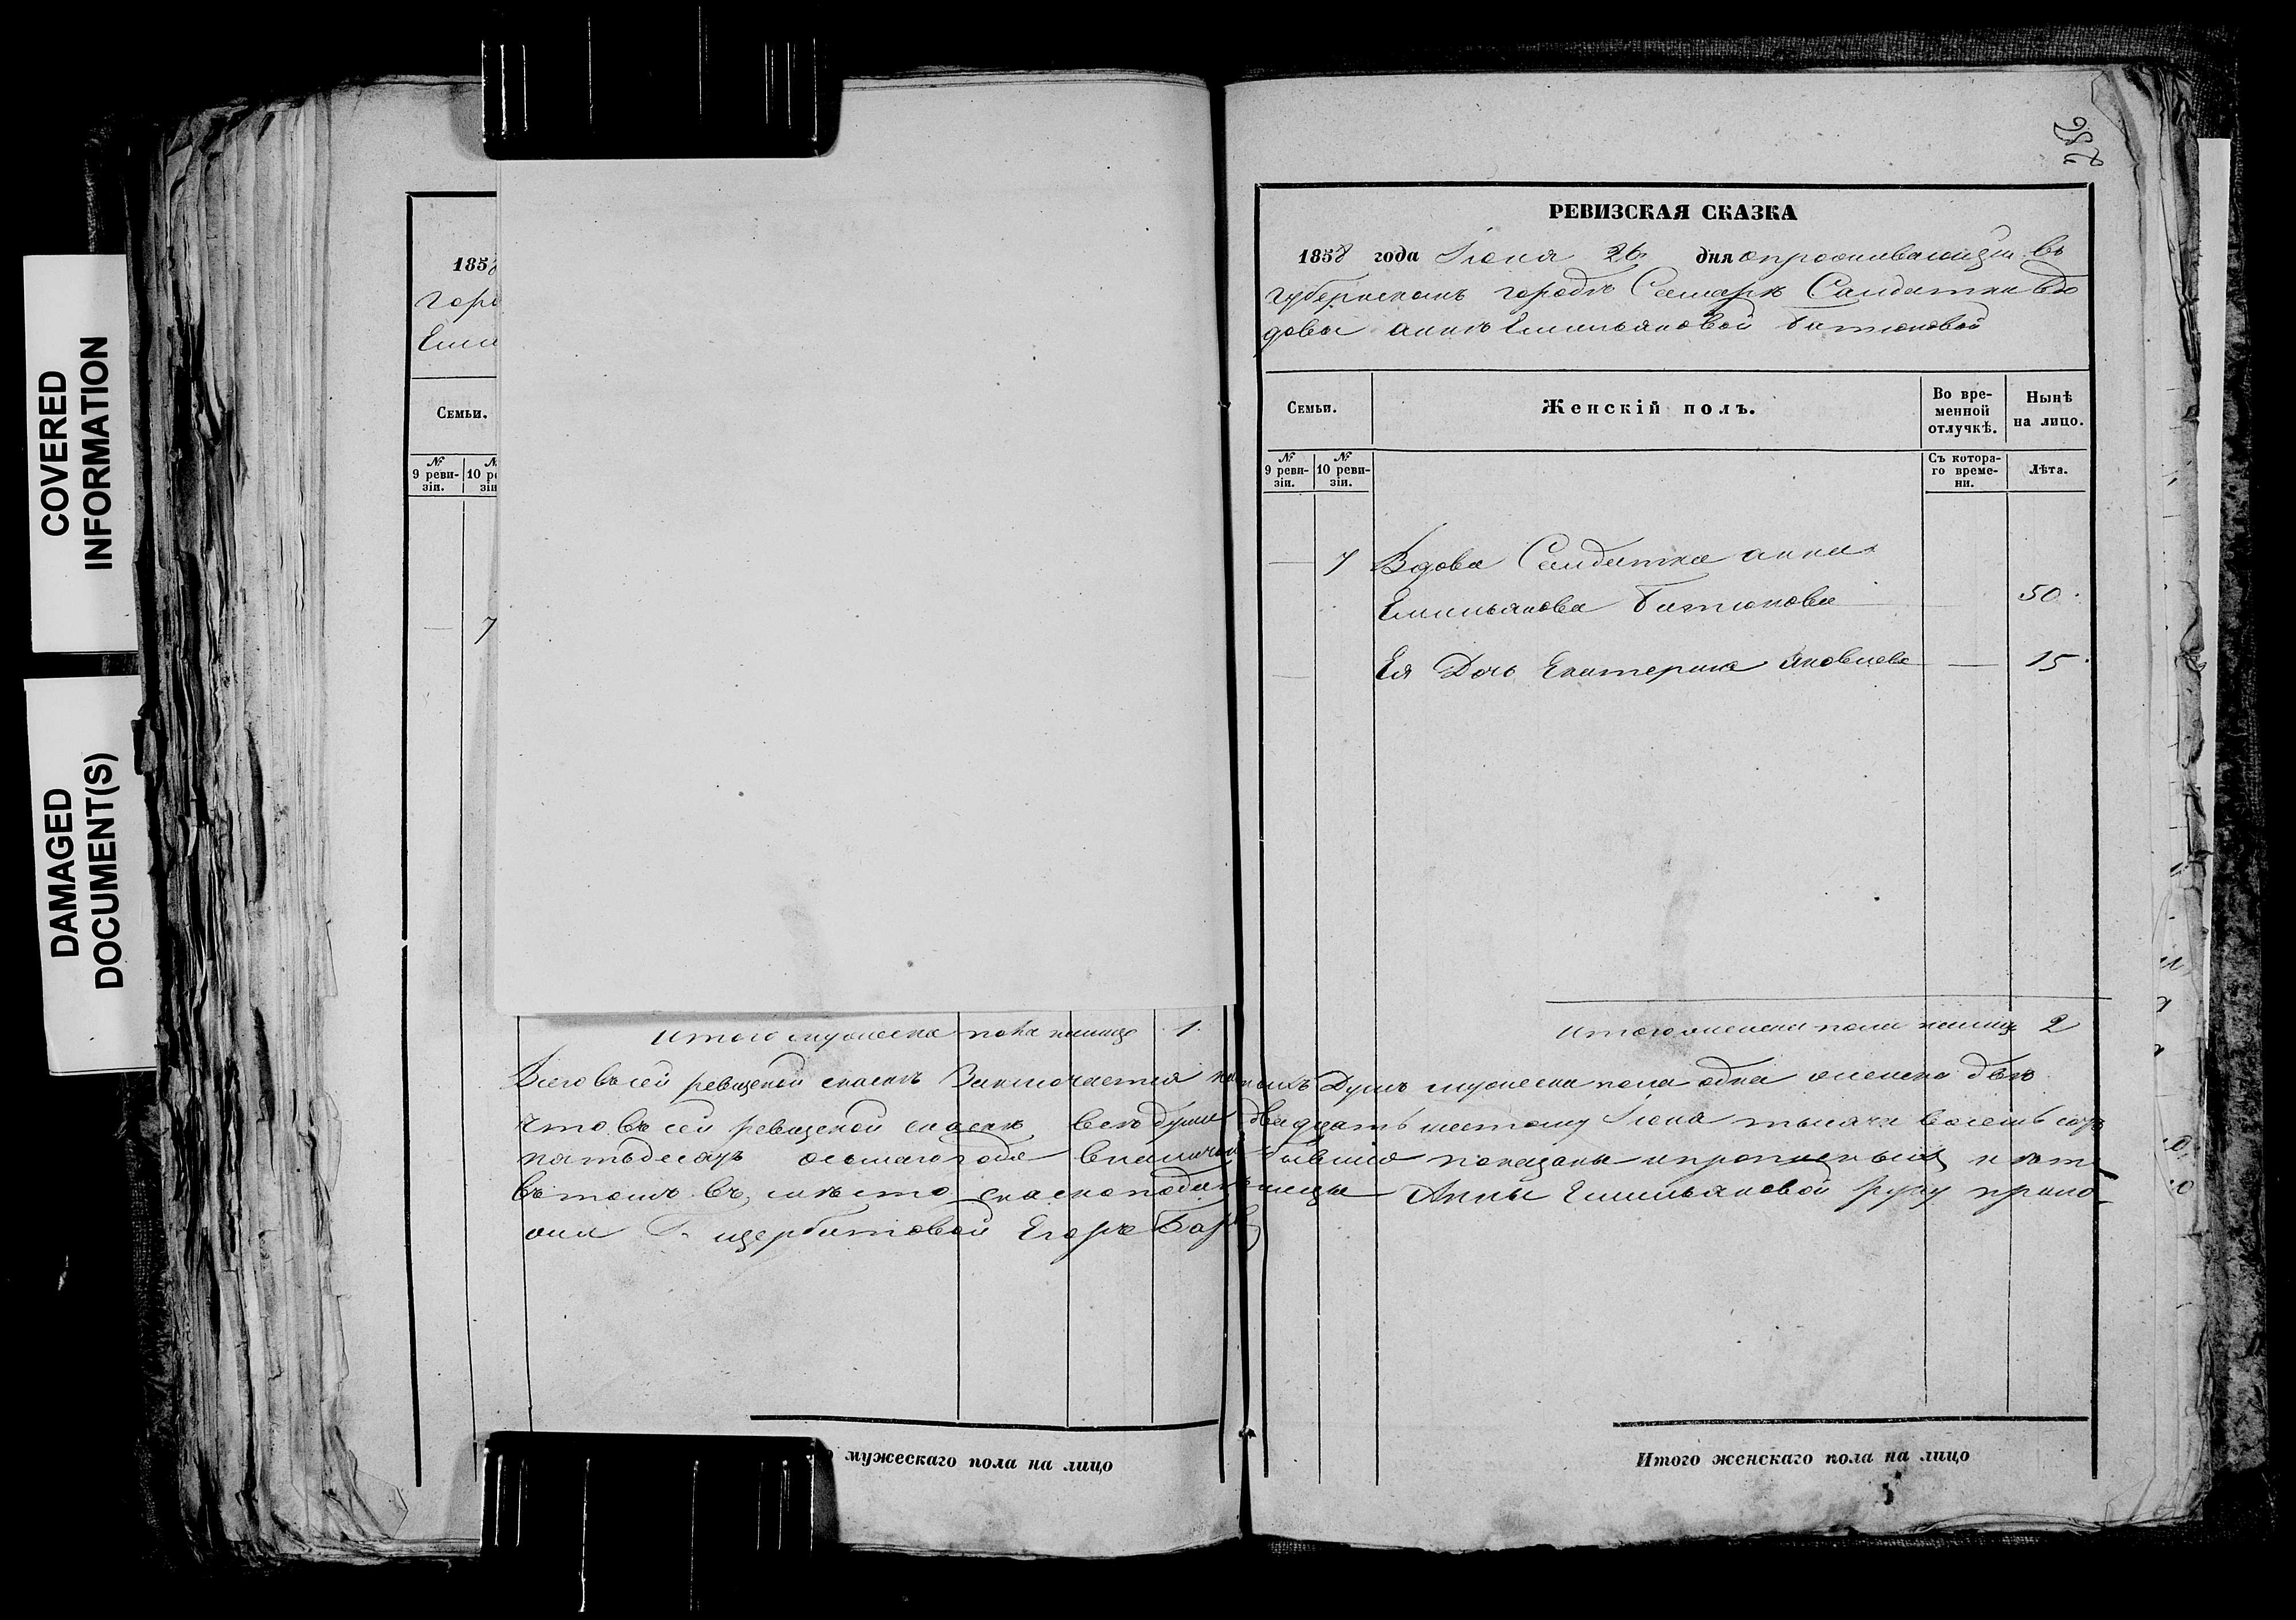 COVERED
INFORMATION
DAMAGED
DOCUMENT(S)
185
горо
Емил
Семьи.
№ 9 реви-зіи.
№ 10 ре зіи
7
Итого мужеска пола налицо 1.
286
РЕВИЗСКАЯ СКАЗКА
1858 года Іюня 26 дня опроживающей въ
губернскомъ городѣ Самарѣ Салдатки вдо
довы аннѣ Емильяновой Батюковой
Семьи.
Женскій полъ.
Во вре-менной отлучкѣ.
Нынѣ на лицо.
№ 9 реви-зіи.
№ 10 реви-зіи.
Съ котора-го време-ни.
Лѣта.
7 Вдова Салдатка анна
Емильянова Батюкова 50.
Ея Дочь Екатерина Яковлева 15.
Итого женска пола налицо 2
Всего въ сей ревизской скаскѣ Заключается душъ мужеска пола одна женска двѣ
что в сей ревизской скаскѣ все души двадцать шестому Іюня тысяча восемь сотъ
пятьдесятъ осьмаго года вналичи бывшіе показаны и пропущеныхъ нетъ
въ томъ въ, место скаскоподательницы Анны Емильяновой руку прило-
жил Щербитовой Егоръ
мужескаго пола на лицо
Итого женскаго пола на лицо